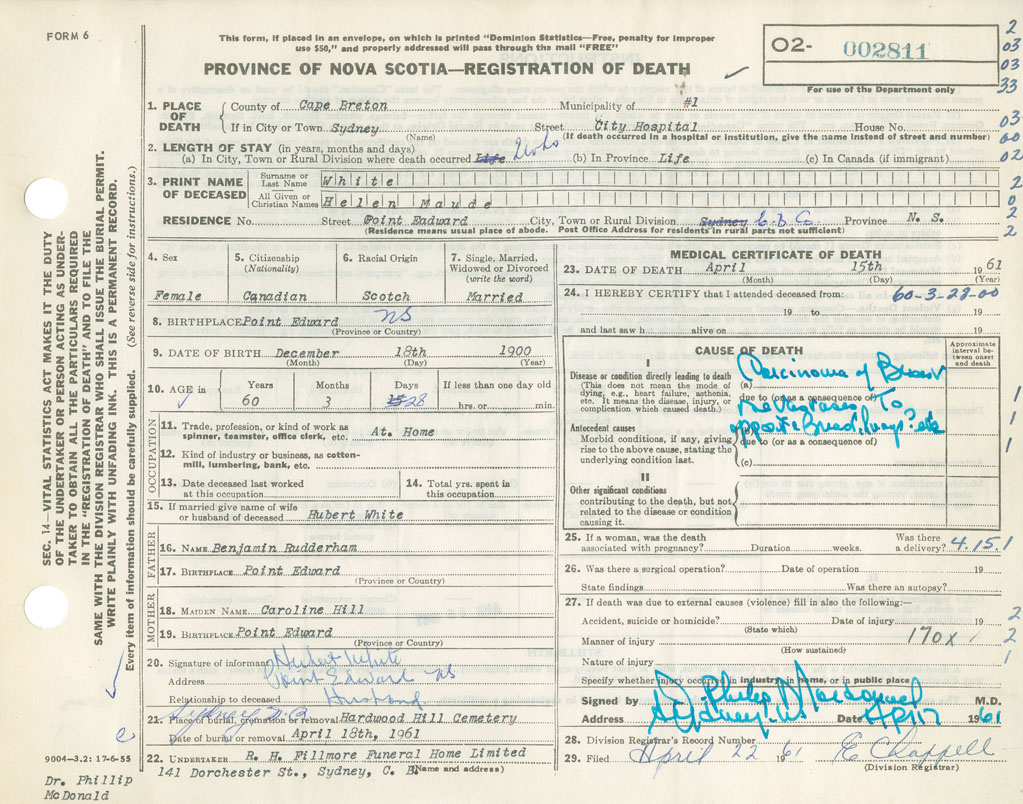 FORM 6
This form, if placed in an envelope, on which is printed "Dominion Statistics—Free, penalty for improper
use $50," and properly addressed will pass through the mail "FREE"
PROVINCE OF NOVA SCOTIA—REGISTRATION OF DEATH
O2- 002811
For use of the Department only
2
03
03
33
03
00
02
2
0
2
2
1. PLACE OF DEATH
County of Cape Breton Municipality of #1
If in City or Town Sydney Street City Hospital House No.
(Name) (If death occurred in a hospital or institution, give the name instead of street and number)
2. LENGTH OF STAY (in years, months and days)
(a) In City, Town or Rural Division where death occurred Life 2 wks (b) In Province Life (c) In Canada (if immigrant)
3. PRINT NAME OF DECEASED
Surname or Last Name White
All Given or Christian Names Helen Maude
RESIDENCE No. Street Point Eadward City, Town or Rural Division Sydney C. B. Co Province N. S.
(Residence means usual place of abode. Post Office Address for residents in rural parts not sufficient)
4. Sex
Female
5. Citizenship
(Nationality)
Canadian
6. Racial Origin
Scotch
7. Single, Married,
Widowed or Divorced
(write the word)
Married
8. BIRTHPLACE Point Edward NS
(Province or Country)
9. DATE OF BIRTH December 18th 1900
(Month) (Day) (Year)
10. AGE in Years Months Days If less than one day old
60 3 28 hrs. or min.
OCCUPATION
11. Trade, profession, or kind of work as
spinner, teamster, office clerk, etc. At. Home
12. Kind of industry or business, as cotton-
mill, lumbering, bank, etc.
13. Date deceased last worked
at this occupation
14. Total yrs. spent in
this occupation
15. If married give name of wife
or husband of deceased Hubert White
FATHER
16. NAME Benjamin Rudderham
17. BIRTHPLACE Point Edward
(Province or Country)
MOTHER
18. MAIDEN NAME Caroline Hill
19. BIRTHPLACE Point Edward
(Province or Country)
20. Signature of informant Hubert White
Address Point Edward NS
Relationship to deceased Husband
21. Place of burial, cremation or removal Hardwood Hill Cemetery
Sydney N S
Date of burial or removal April 18th, 1961
22. UNDERTAKER R. H. Fillmore Funeral Home Limited
141 Dorchester St., Sydney, C. B. (Name and address)
MEDICAL CERTIFICATE OF DEATH
23. DATE OF DEATH April 15th 1961
(Month) (Day) (Year)
24. I HEREBY CERTIFY that I attended deceased from: 60-3-28-00
19 to 19
and last saw h alive on 19
CAUSE OF DEATH
Approximate
interval be-
tween onset
and death
I
Disease or condition directly leading to death
(This does not mean the mode of
dying, e.g., heart failure, asthenia,
etc. It means the disease, injury, or
complication which caused death.)
(a) Carcinoma of Breast
due to (or as a consequence of)
Metastases To
Antecedent causes
Morbid conditions, if any, giving
rise to the above cause, stating the
underlying condition last.
(b) opposite Breast, lungs? etc
due to (or as a consequence of)
(c)
II
Other significant conditions
contributing to the death, but not
related to the disease or condition
causing it.
1
1
1
25. If a woman, was the death
associated with pregnancy? Duration weeks. Was there
a delivery? 4.15.1
26. Was there a surgical operation? Date of operation 19
State findings Was there an autopsy?
27. If death was due to external causes (violence) fill in also the following:—
Accident, suicide or homicide? Date of injury 19
(State which)
Manner of injury 170x
(How sustained)
Nature of injury
2
2
1
Specify whether injury occurred in industry, in home, or in public place
Signed by Philip Macdonald M.D.
Address Sydney, NS Date Apr 17 1961
28. Division Registrar's Record Number
29. Filed April 22 1961 E Chappell
(Division Registrar)
SEC. 14—VITAL STATISTICS ACT MAKES IT THE DUTY
OF THE UNDERTAKER OR PERSON ACTING AS UNDER-
TAKER TO OBTAIN ALL THE PARTICULARS REQUIRED
IN THE "REGISTRATION OF DEATH" AND TO FILE THE
SAME WITH THE DIVISION REGISTRAR WHO SHALL ISSUE THE BURIAL PERMIT.
WRITE PLAINLY WITH UNFADING INK. THIS IS A PERMANENT RECORD.
Every item of information should be carefully supplied. (See reverse side for instructions.)
9004—3.2: 17-6-55
Dr. Phillip
McDonald